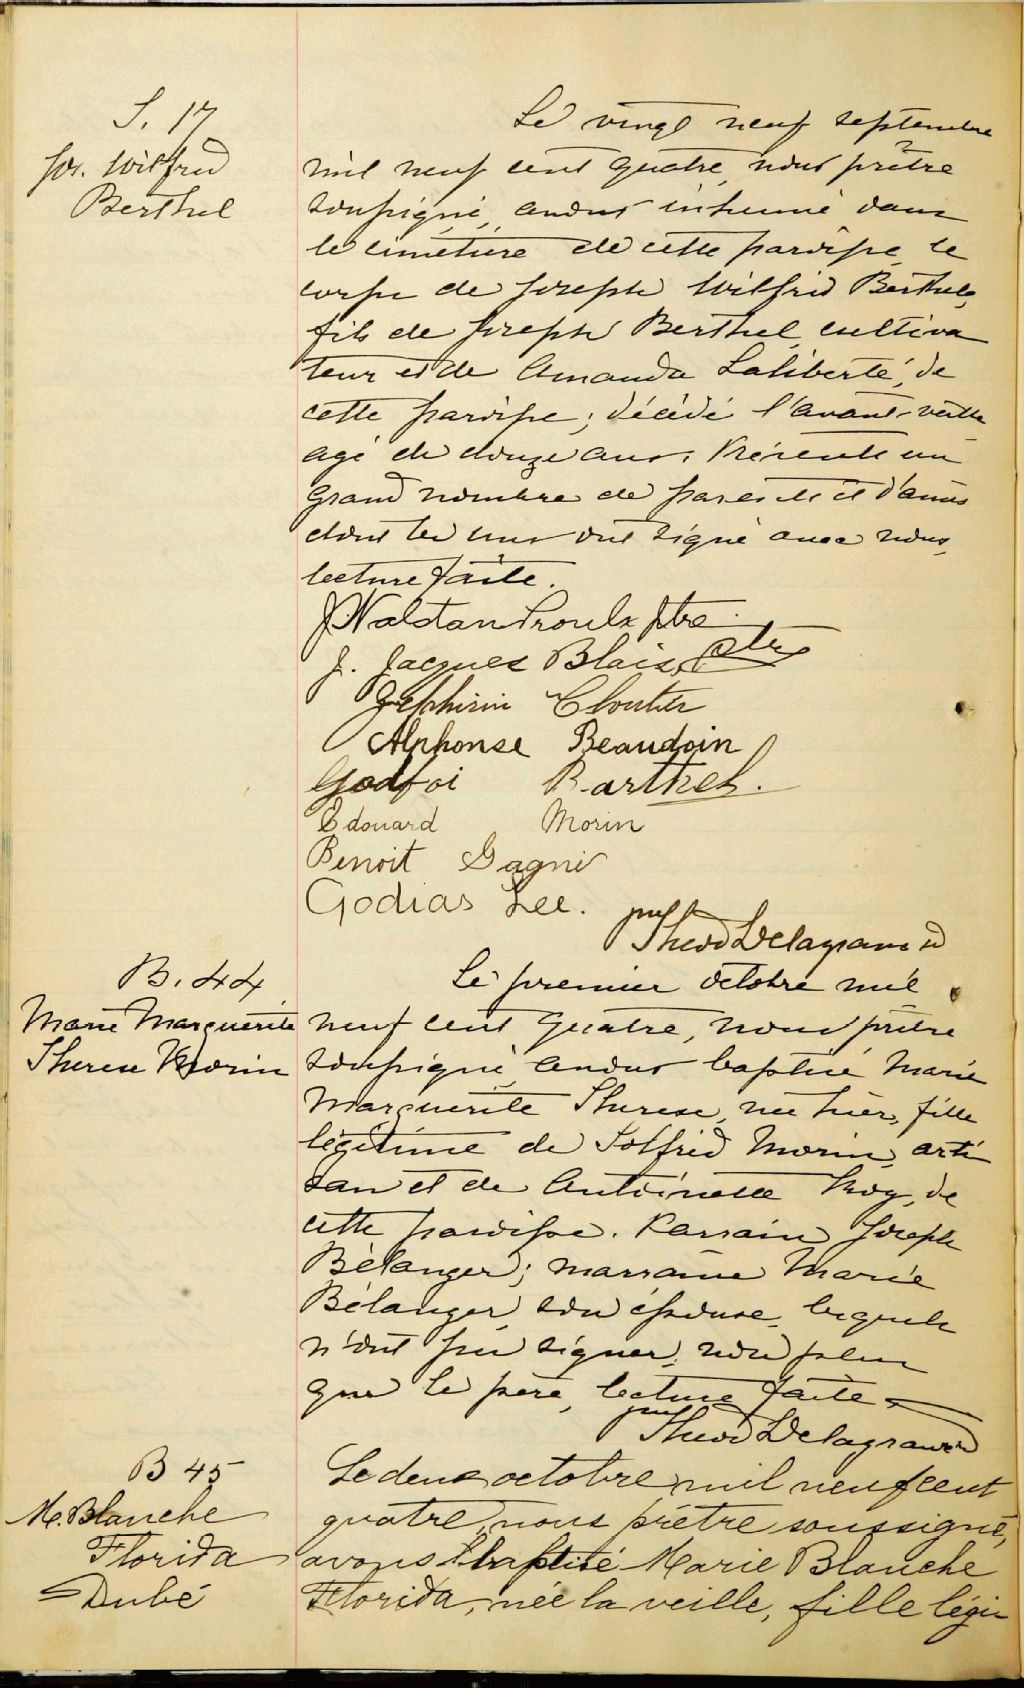 S. 17
Jos. Wilfrid
Berthel
Le vingt neuf septembre
mil neuf cent quatre, nous prêtre
soussigné, avons inhumé dans
le cimétière de cette paroisse le
corps de Joseph Wilfrid Berthel,
fils de Joseph Berthel, cultiva
teur et de Amanda Laliberté, de
cette paroisse; décédé l'avant-veille
agé de douze ans. Présents un
grand nombre de parents et d'amis
dont les uns ont signé avec nous,
lecture faite.
J. Nalstan Proulx ptre
J. Jacques Blais, Ptre
Zéphirin Cloutier
Alphonse Beaudoin
Godfoi Barthel.
Edouard Morin
Benoit Gagné
Godias Lee.
Theod Delagrave
B. 44
Marie Marguerite
Therese Morin
Le premier octobre mil
neuf cent quatre, nous prêtre
soussigné avons baptisé Marie
Marguerite Therese, née hier, fille
légitime de Solfrid Morin, arti
san et de Antoinette Roy, de
cette paroisse. Parrain Joseph
Bélanger; marraine Marie
Bélanger, son épouse, lesquels
n'ont pu signer, non plus
que le père, lecture faite
Theod Delagrave
B 45
M. Blanche
Florida
Dubé
Le deux octobre mil neuf cent
quatre, nous prêtre soussigné,
avons baptisé Marie Blanche
Florida, née la veille, fille légi-